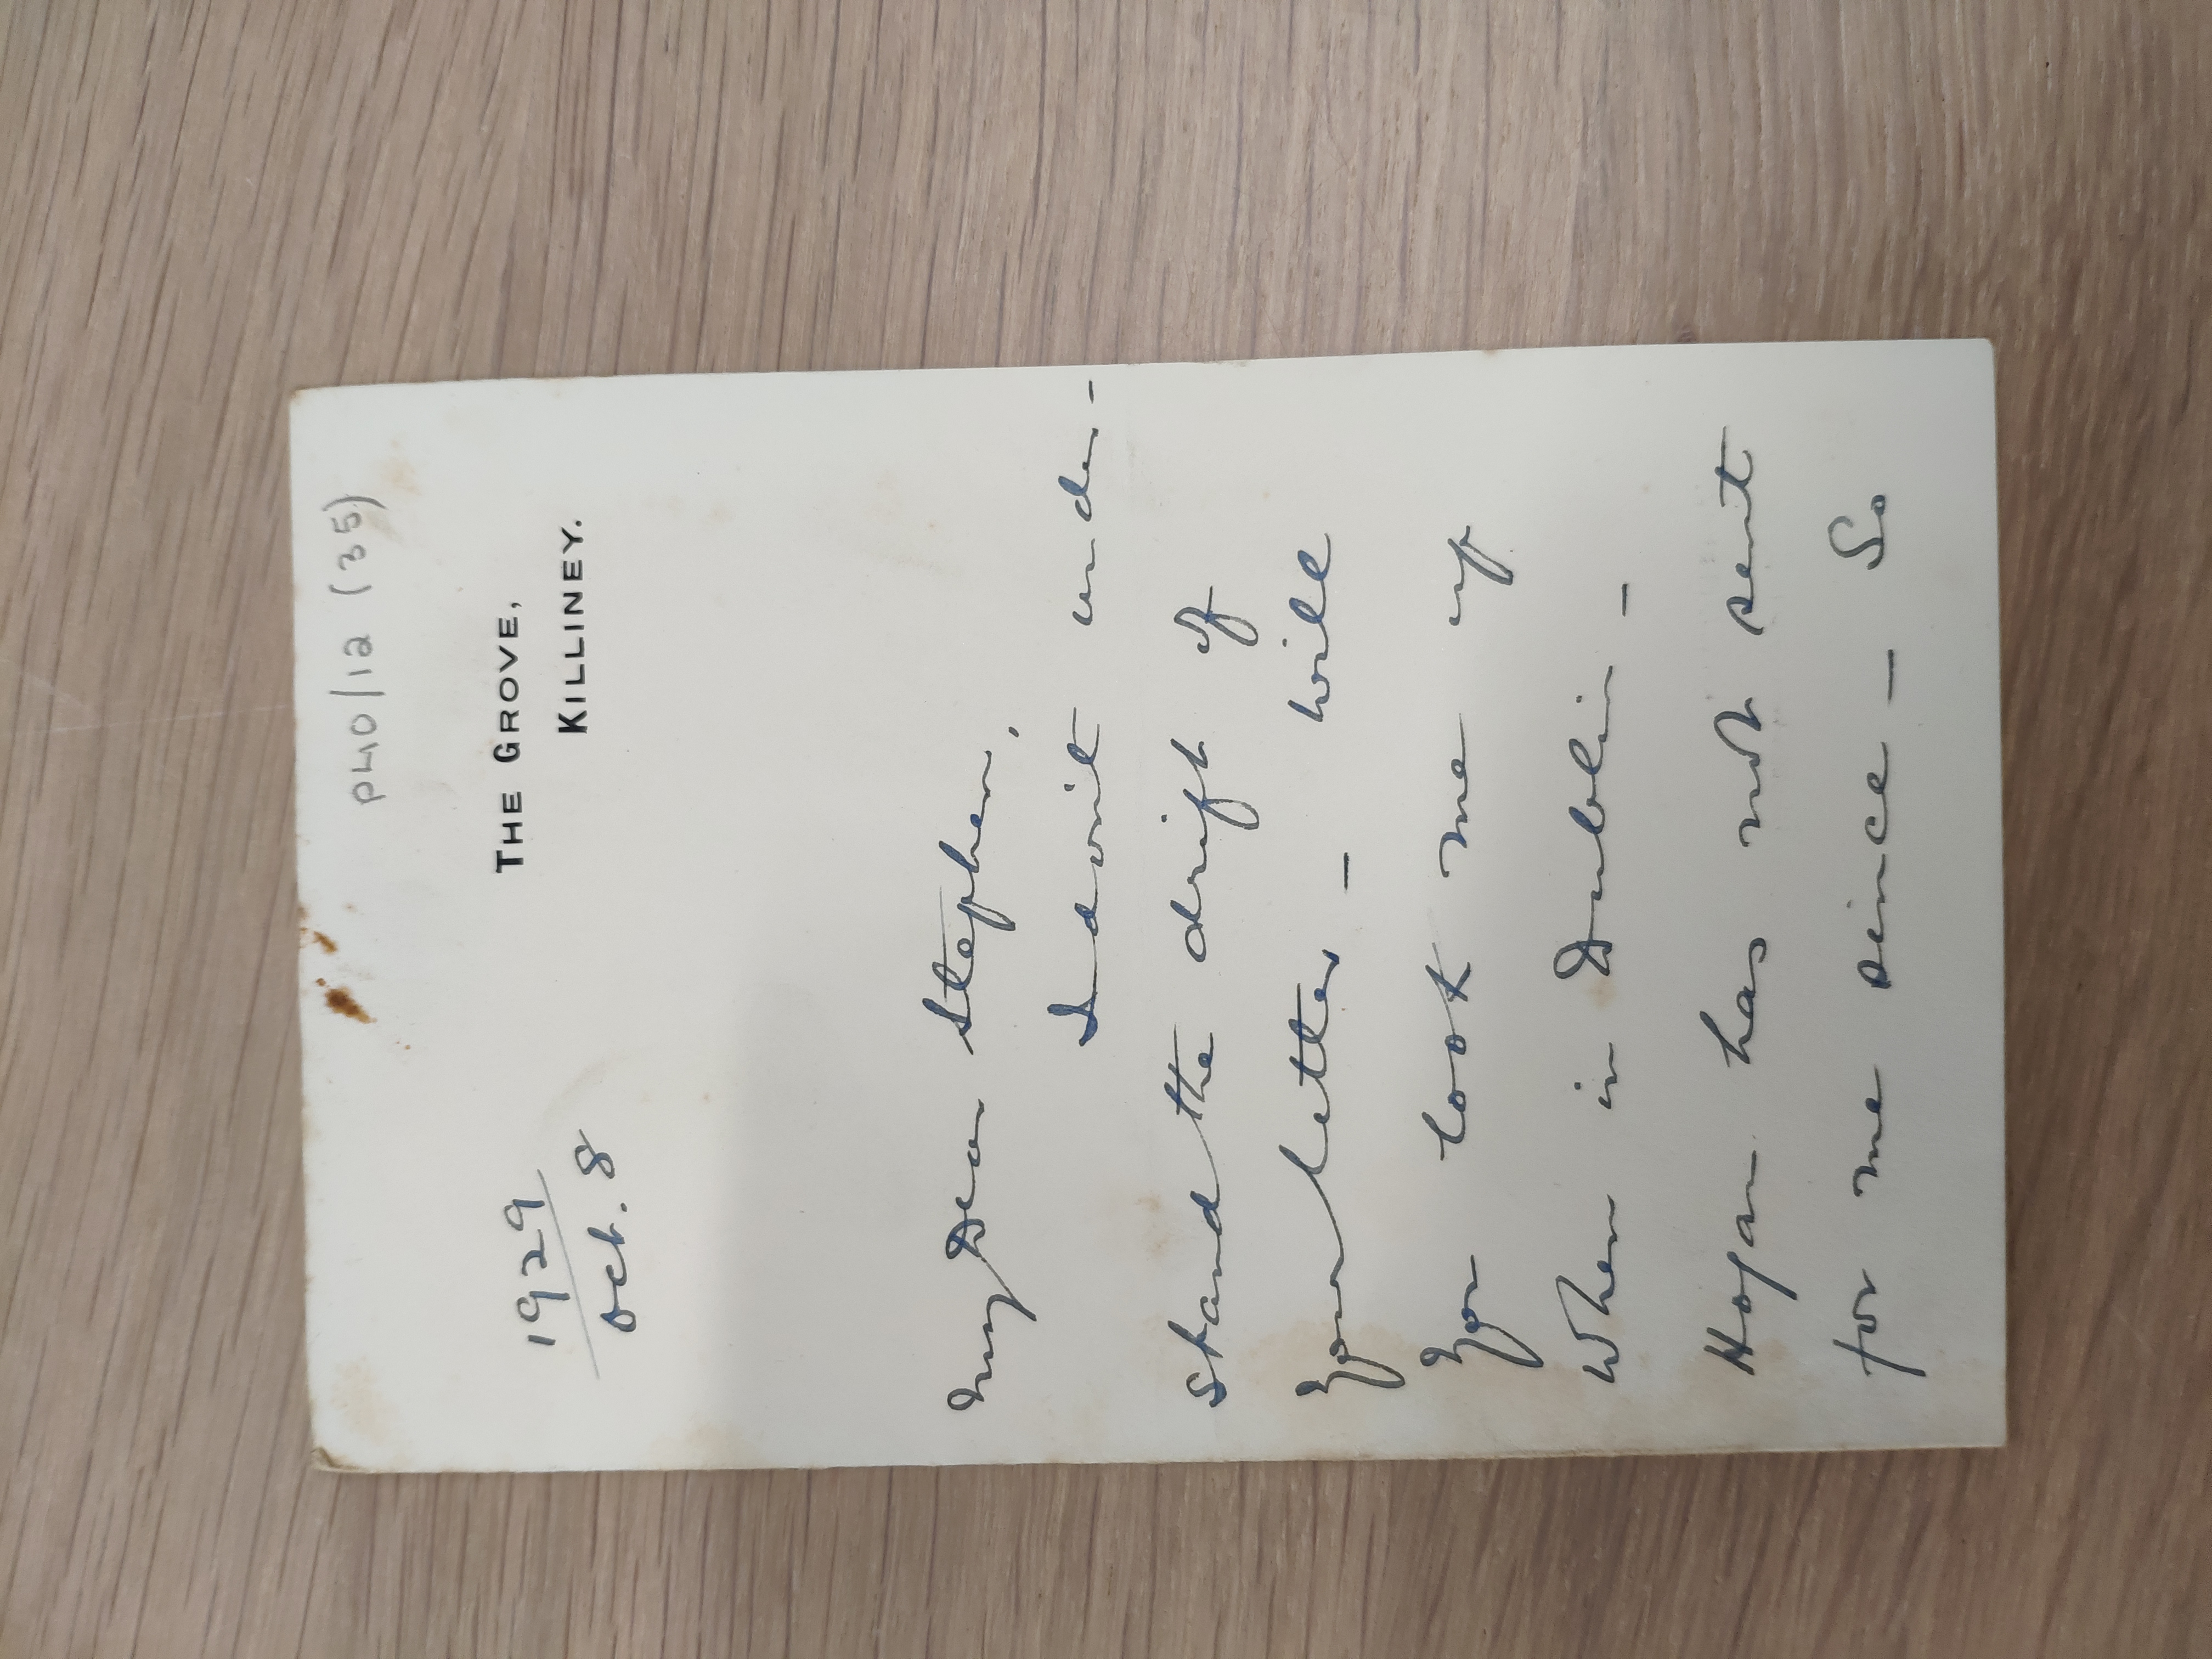 P40/12 (35)
THE GROVE,
KILLINEY.
1929
Oct. 8
My Dear Stephen,
I don't under-
stand the drift of
your letter - will
you look me up
when in Dublin -
Hogan has not sent
for me since - So